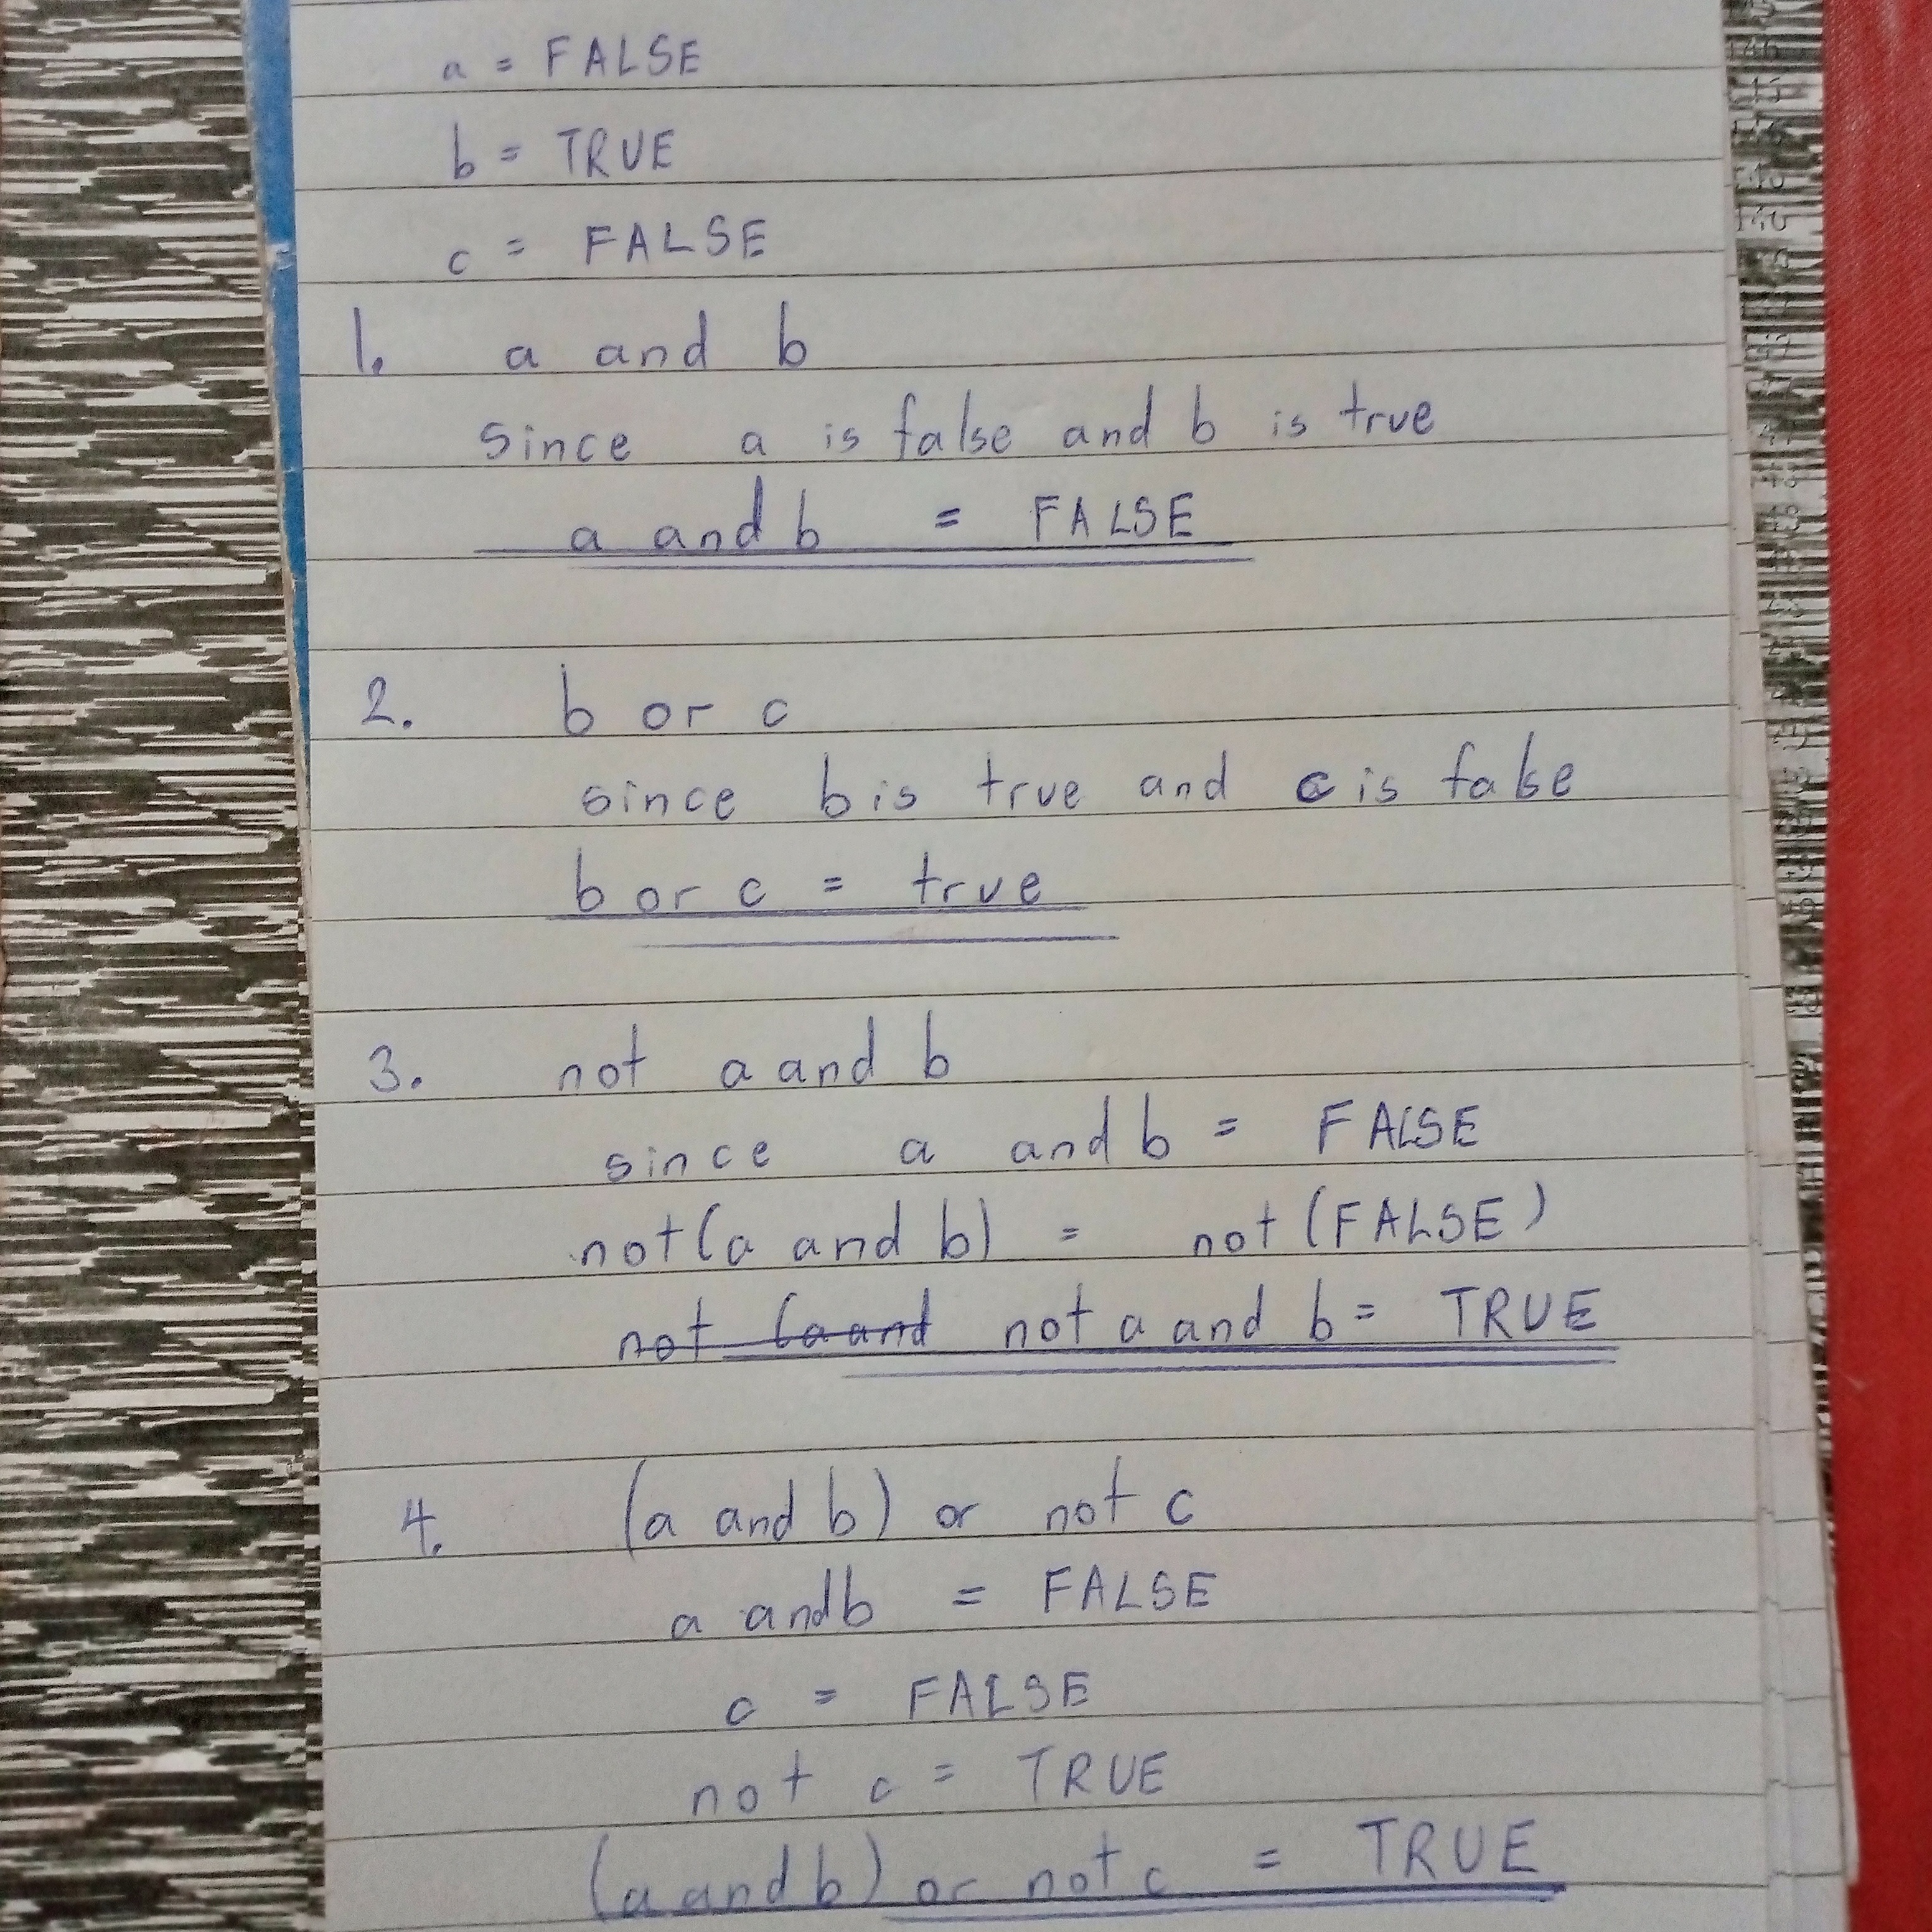 a = FALSE
b = TRUE
c = FALSE
1. a and b
since a is false and b is true
a and b = FALSE
2. b or c
since b is true and c is false
b or c = true
3. not a and b
since a and b = FALSE
not(a and b) = not (FALSE)
not (a and not a and b = TRUE
4. (a and b) or not c
a and b = FALSE
c = FALSE
not c = TRUE
(a and b) or not c = TRUE